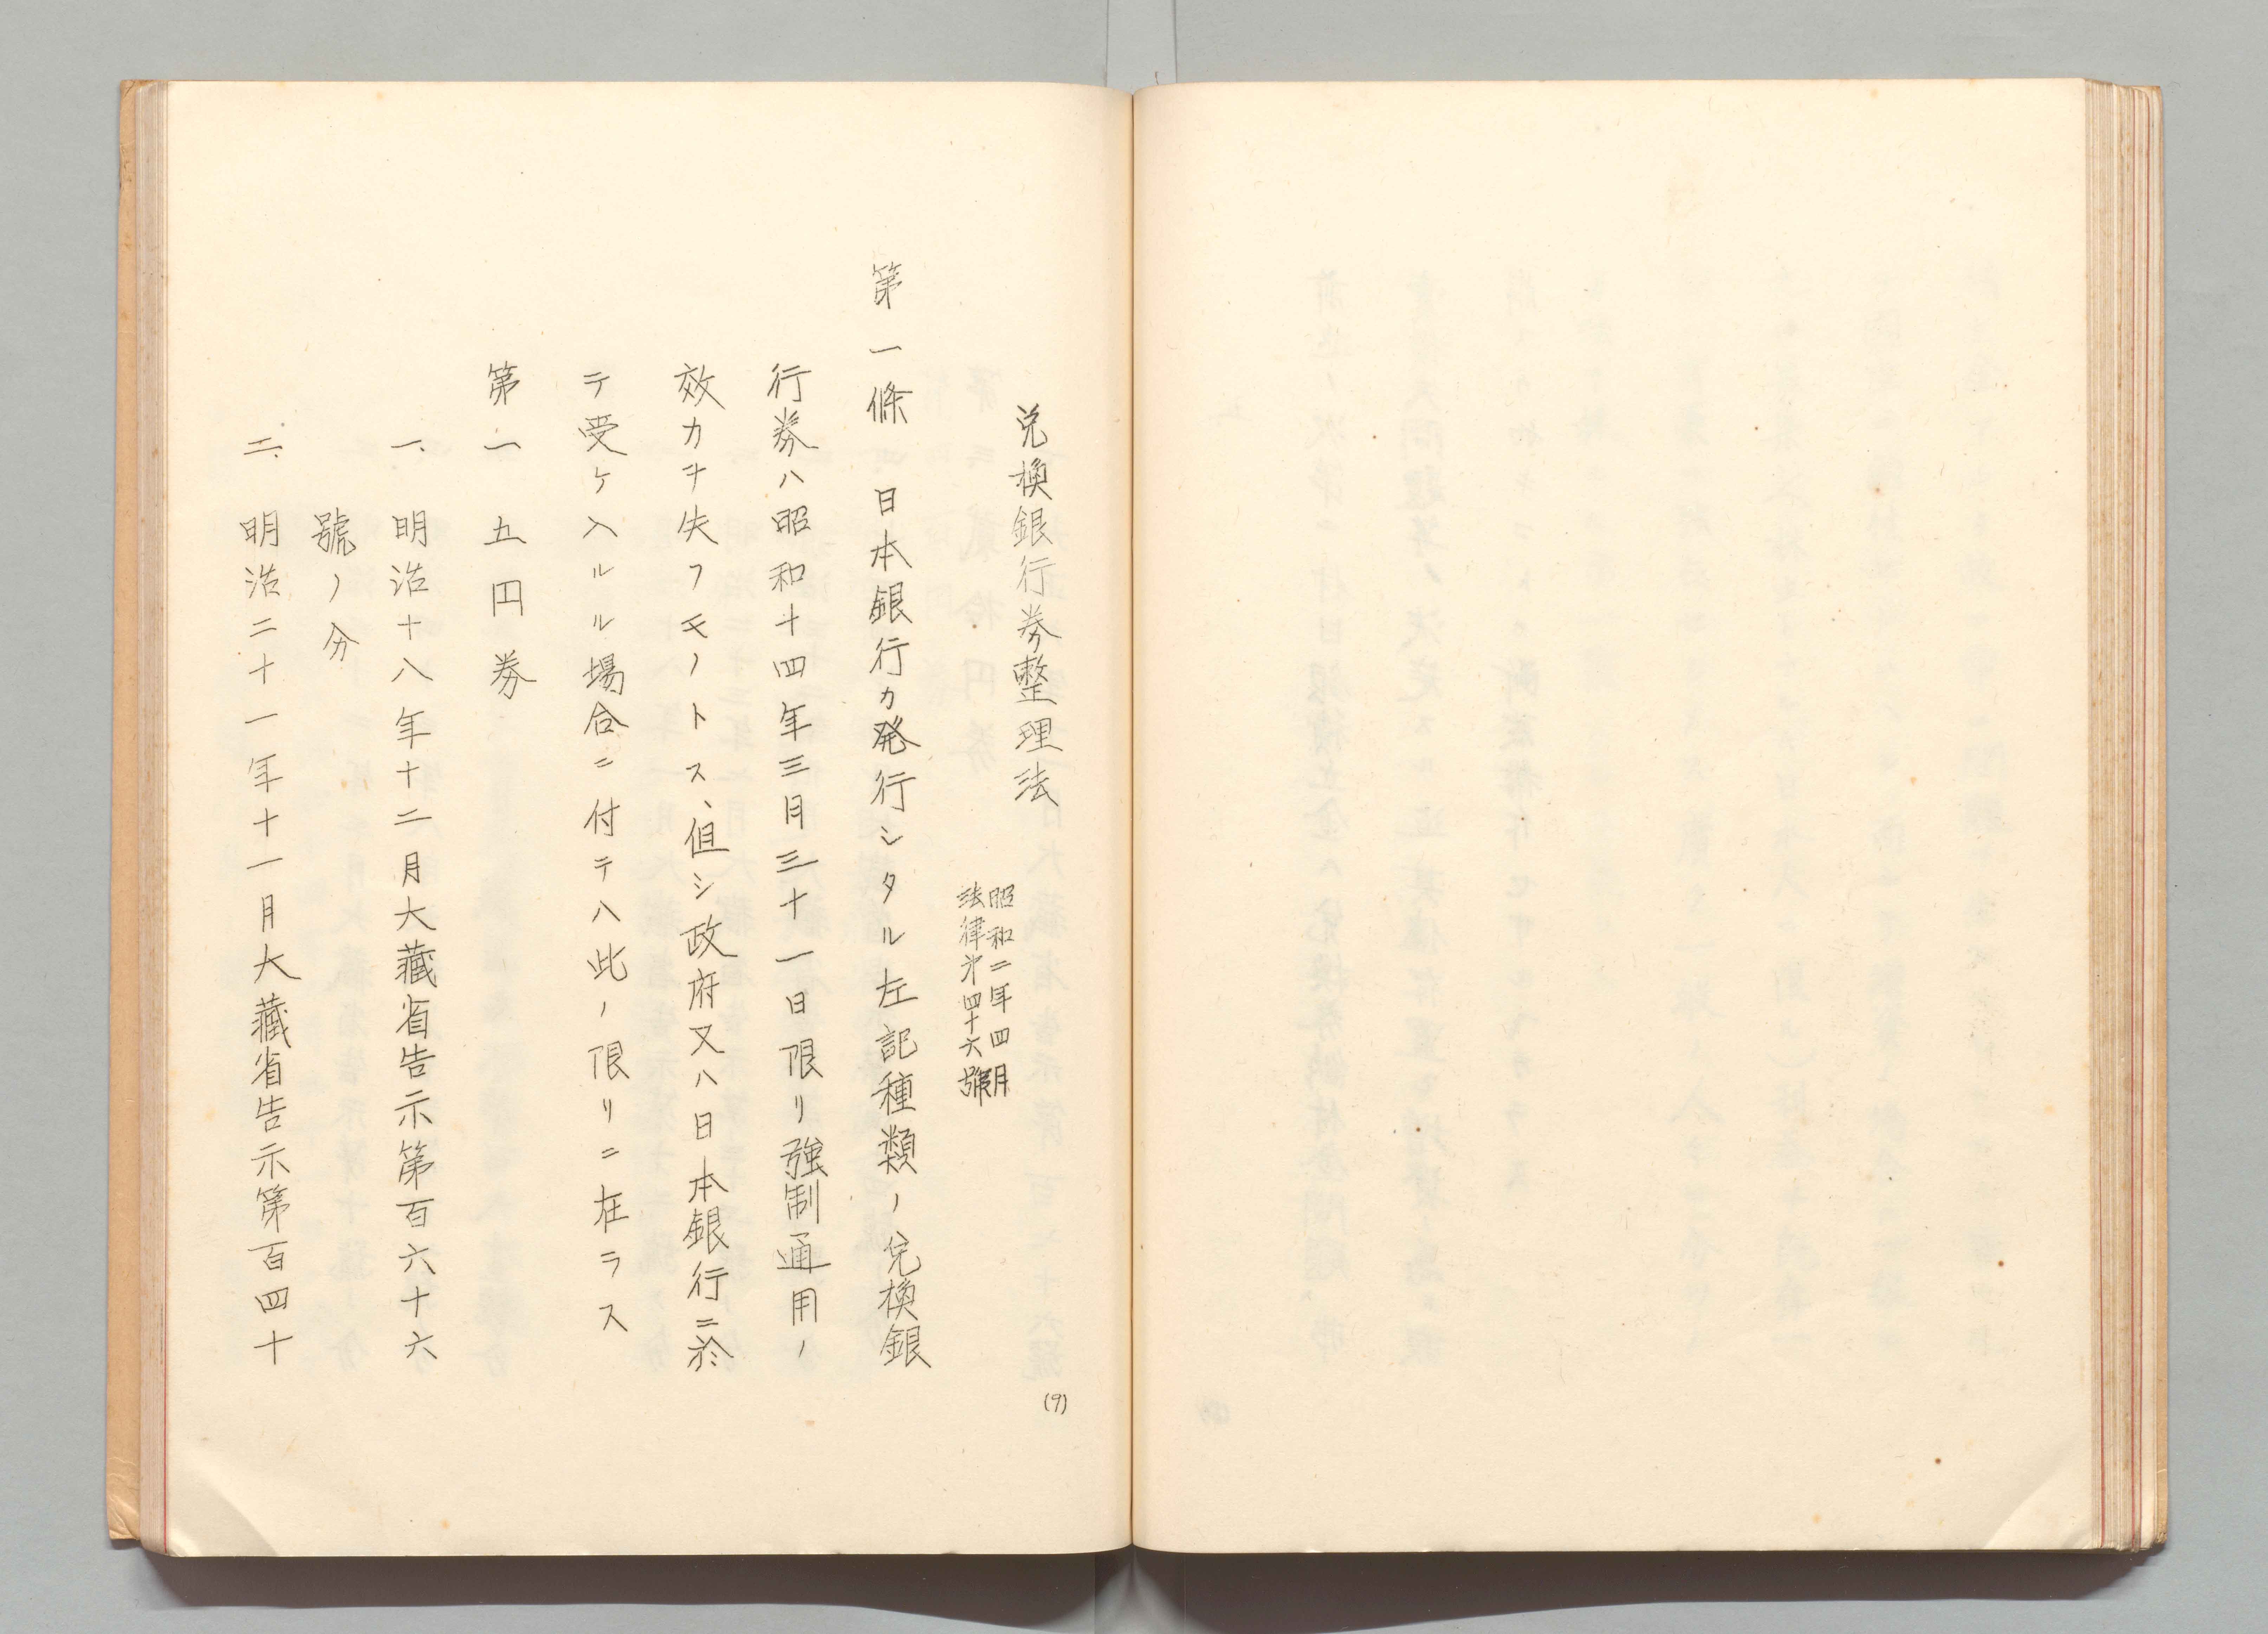 兌換銀行券整理法
昭和二年四月
法律第四十六號
第一條 日本銀行カ発行シタル左記種類ノ兌換銀
行券ハ昭和十四年三月三十一日限リ強制通用ノ
效力ヲ失フモノトス、但シ政府又ハ日本銀行ニ於
テ受ケ入ルル場合ニ付テハ此ノ限リニ在ラス
第一 五円券
一、明治十八年十二月大藏省告示第百六十六
號ノ分
二、明治二十一年十一月大藏省告示第百四十
(9)